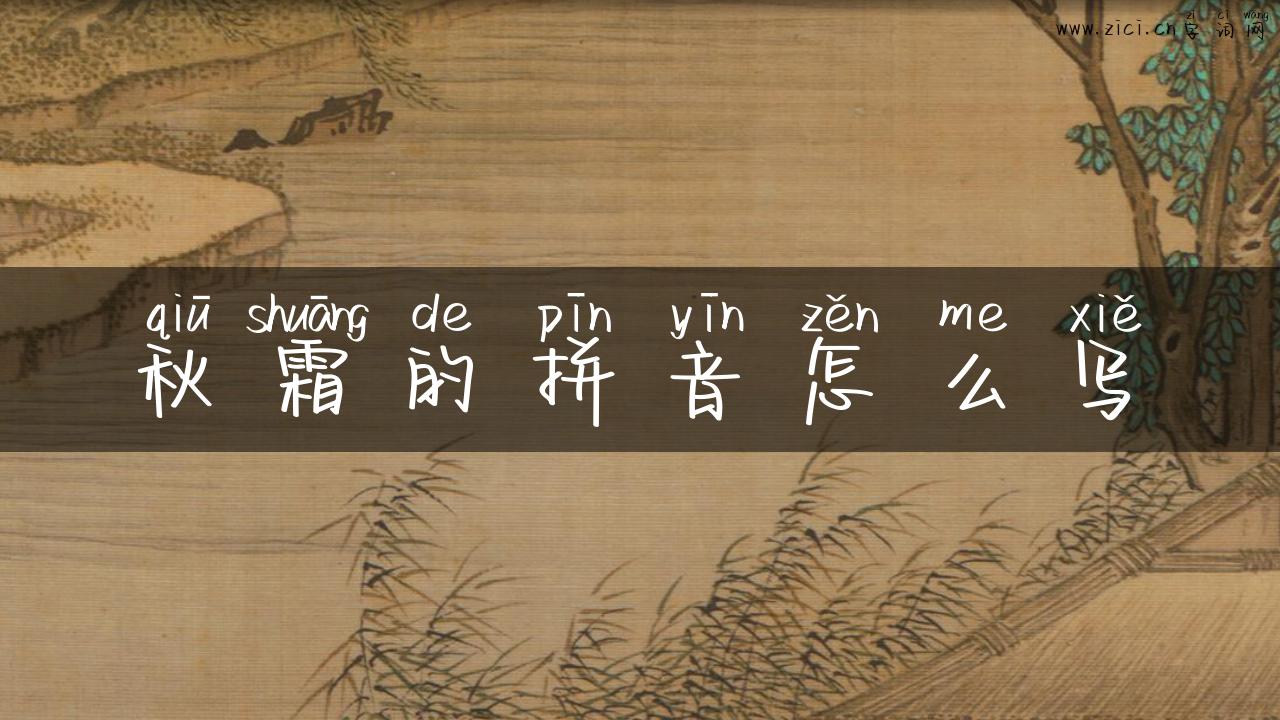 www.zici.cn字词网
zì cí wǎng
qiū shuāng de pīn yīn zěn me xiě
秋霜的拼音怎么写